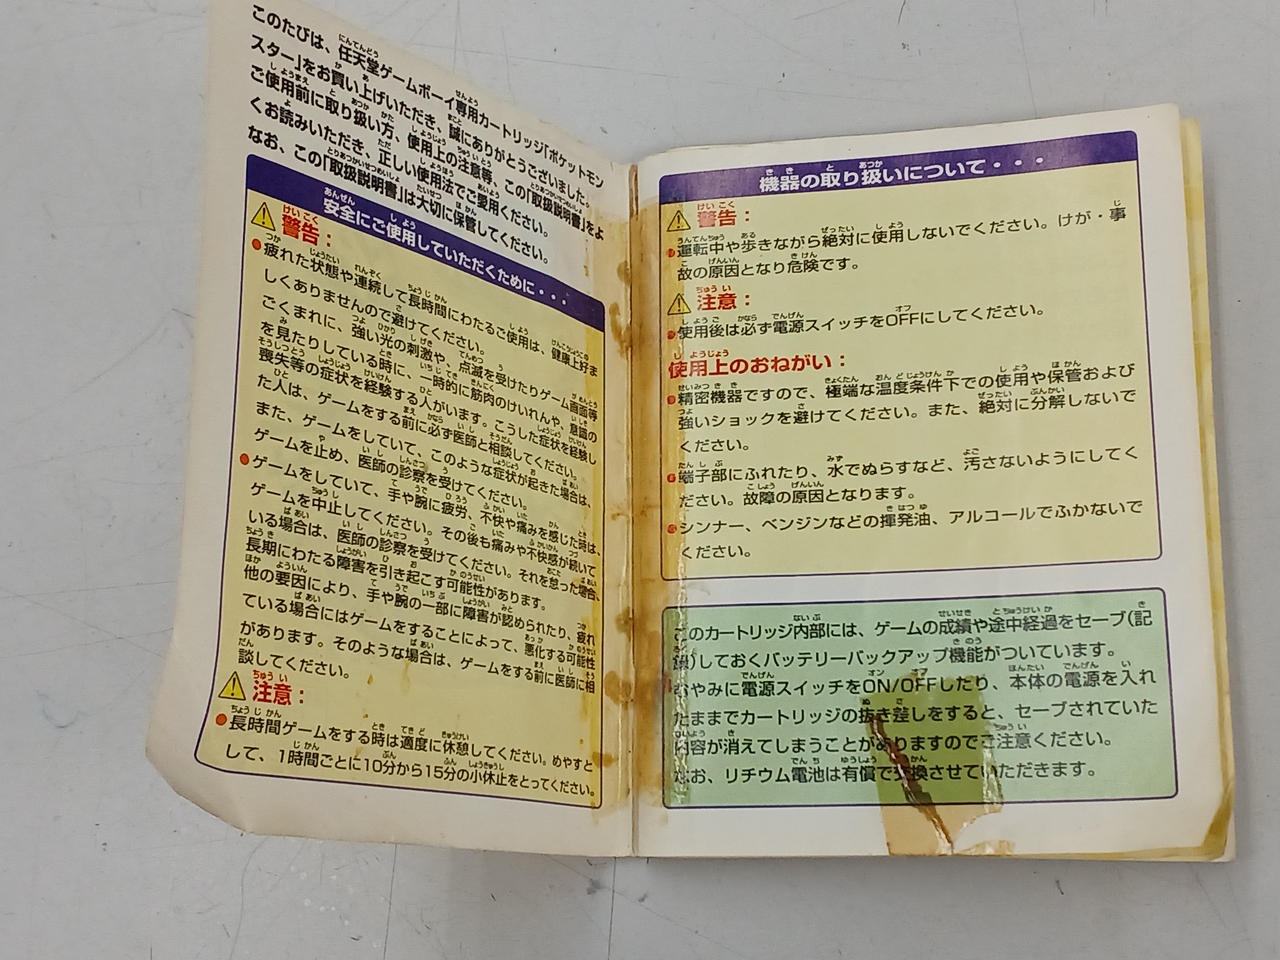 このたびは、任天堂ゲームボーイ専用カートリッジ「ポケットモン
スター」をお買い上げいただき、誠にありがとうございました。
ご使用前に取り扱い方、使用上の注意等、この「取扱説明書」をよ
くお読みいただき、正しい使用法でご愛用ください。
なお、この「取扱説明書」は大切に保管してください。
安全にご使用していただくために・・・
警告：
●疲れた状態や連続して長時間にわたるご使用は、健康上好ま
しくありませんので避けてください。
ごくまれに、強い光の刺激や、点滅を受けたりゲーム画面等
を見たりしている時に、一時的に筋肉のけいれんや、意識の
喪失等の症状を経験する人がいます。こうした症状を経験し
た人は、ゲームをする前に必ず医師と相談してください。
また、ゲームをしていて、このような症状が起きた場合は、
ゲームを止め、医師の診察を受けてください。
●ゲームをしていて、手や腕に疲労、不快や痛みを感じた時は、
ゲームを中止してください。その後も痛みや不快感が続いて
いる場合は、医師の診察を受けてください。それを怠った場合、
長期にわたる障害を引き起こす可能性があります。
他の要因により、手や腕の一部に障害が認められたり、疲れ
ている場合にはゲームをすることによって、悪化する可能性
があります。そのような場合は、ゲームをする前に医師に相
談してください。
注意：
●長時間ゲームをする時は適度に休憩してください。めやすと
して、1時間ごとに10分から15分の小休止をとってください。
機器の取り扱いについて・・・
警告：
●運転中や歩きながら絶対に使用しないでください。けが・事
故の原因となり危険です。
注意：
●使用後は必ず電源スイッチをOFFにしてください。
使用上のおねがい：
●精密機器ですので、極端な温度条件下での使用や保管および
強いショックを避けてください。また、絶対に分解しないで
ください。
●端子部にふれたり、水でぬらすなど、汚さないようにしてく
ださい。故障の原因となります。
●シンナー、ベンジンなどの揮発油、アルコールでふかないで
ください。
このカートリッジ内部には、ゲームの成績や途中経過をセーブ(記
録)しておくバッテリーバックアップ機能がついています。
むやみに電源スイッチをON/OFFしたり、本体の電源を入れ
たままでカートリッジの抜き差しをすると、セーブされていた
内容が消えてしまうことがありますのでご注意ください。
なお、リチウム電池は有償で交換させていただきます。